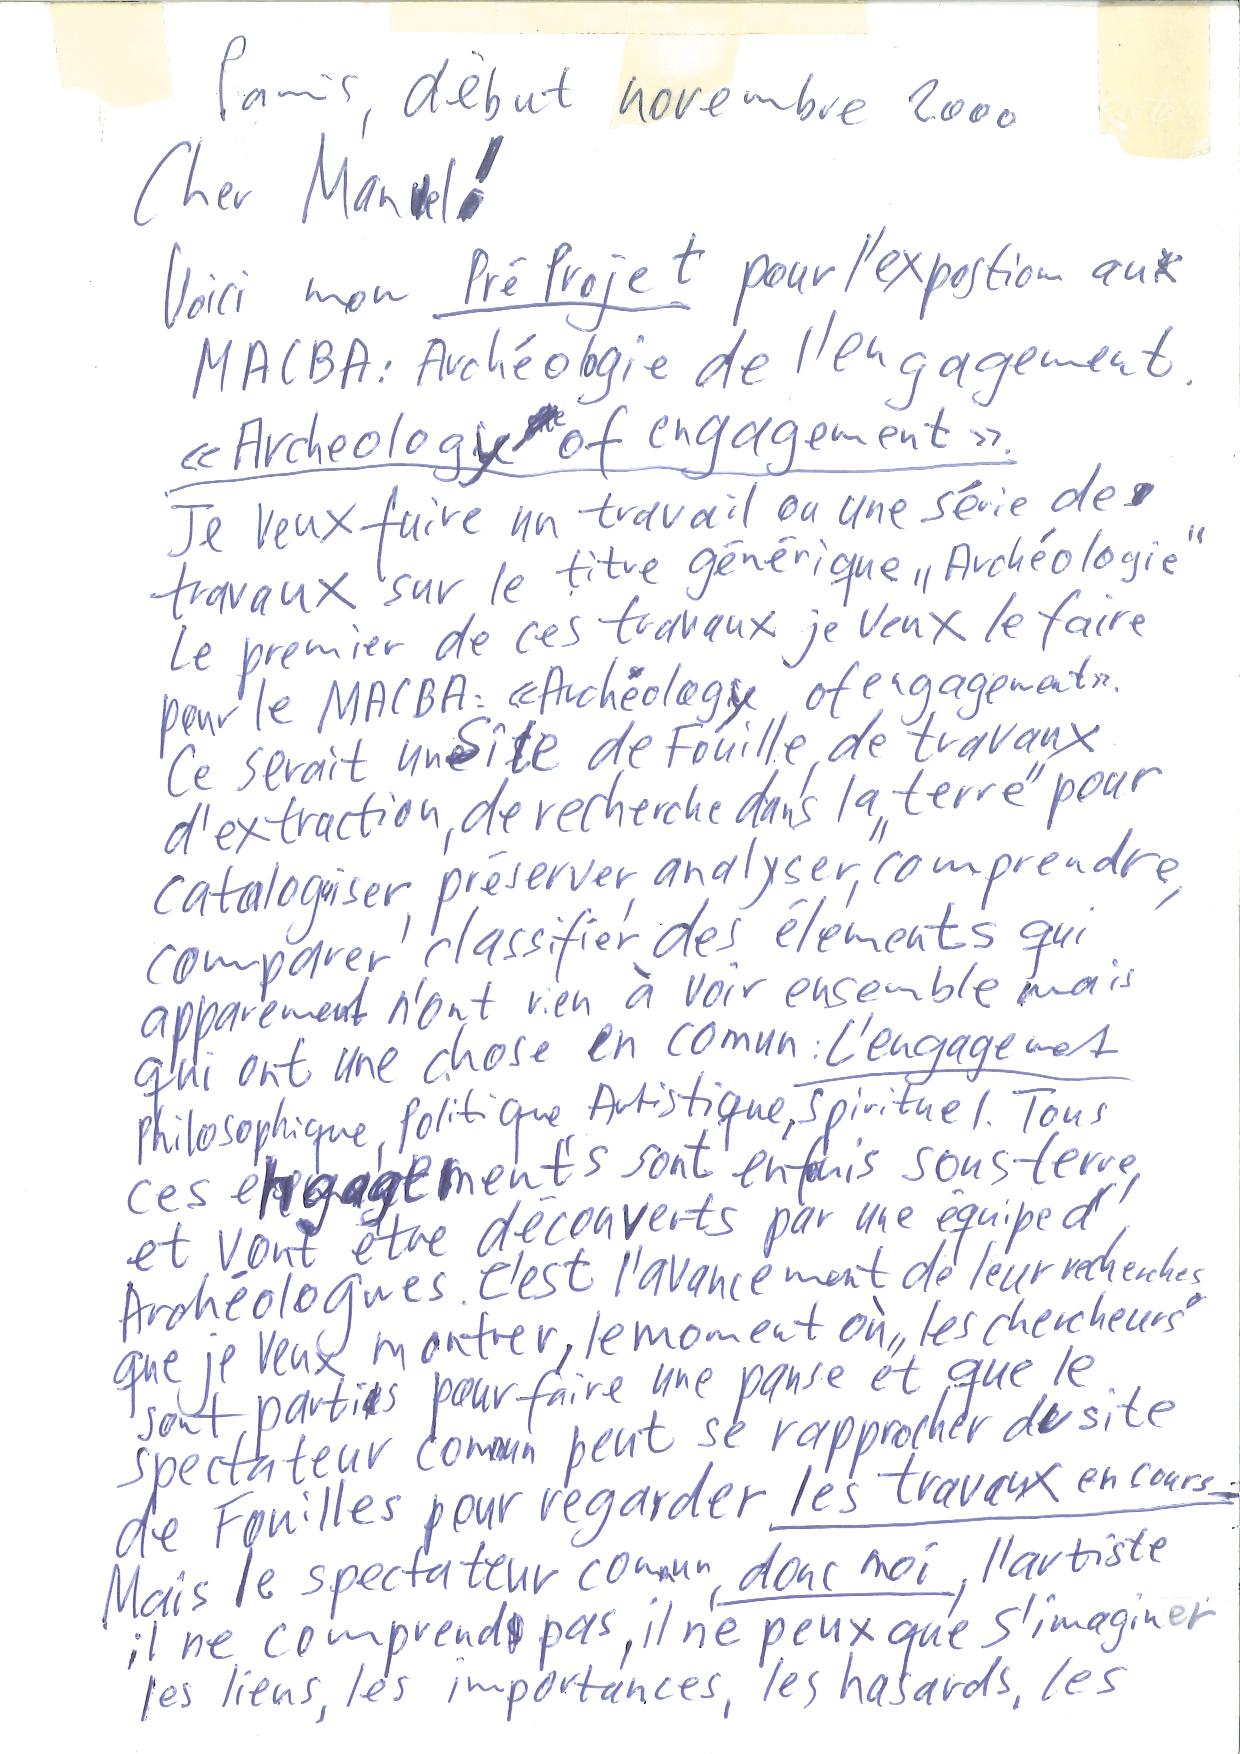 Paris, début novembre 2000
Cher Manuel!
Voici mon Pré Projet pour l'expostion aux
MACBA: Archéologie de l'engagement.
«Archeology of engagement».
Je veux faire un travail ou une série de
travaux sur le titre générique „Archéologie"
Le premier de ces travaux je veux le faire
pour le MACBA: «Archéology of engagement».
Ce serait une Site de Fouille, de travaux
d'extraction, de recherche dans la „terre" pour
cataloguiser, préserver, analyser, comprendre,
comparer, classifier des éléments qui
apparement n'ont rien à voir ensemble mais
qui ont une chose en comun: L'engagement
philosophique, politique Artistique, spirituel. Tous
ces engagements sont enfuis sous-terre,
et vont être découverts par une équipe d'
Archéologues. C'est l'avancement de leur recherches
que je veux montrer, le moment où „les chercheurs"
sont partis pour faire une pause et que le
spectateur comun peut se rapprocher du site
de Fouilles pour regarder les travaux en cours.
Mais le spectateur comun, donc moi, l'artiste
il ne comprend pas, il ne peux que s'imaginer
les liens, les importances, les hasards, les